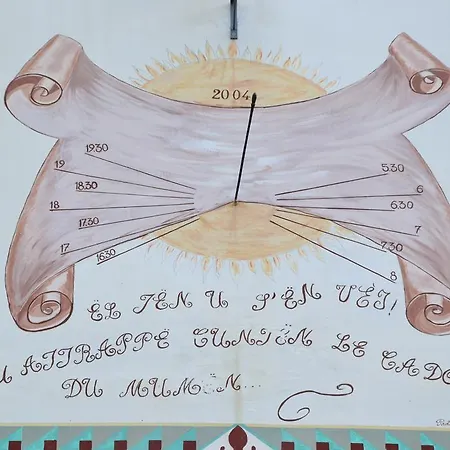 2004
19.30
19
18.30
18
17.30
17
16.30
5.30
6
6.30
7
7.30
8
ËL TËN U S'ËN VEJ!
ATTRAPPË CUNTËN LE
DU MUMËN...